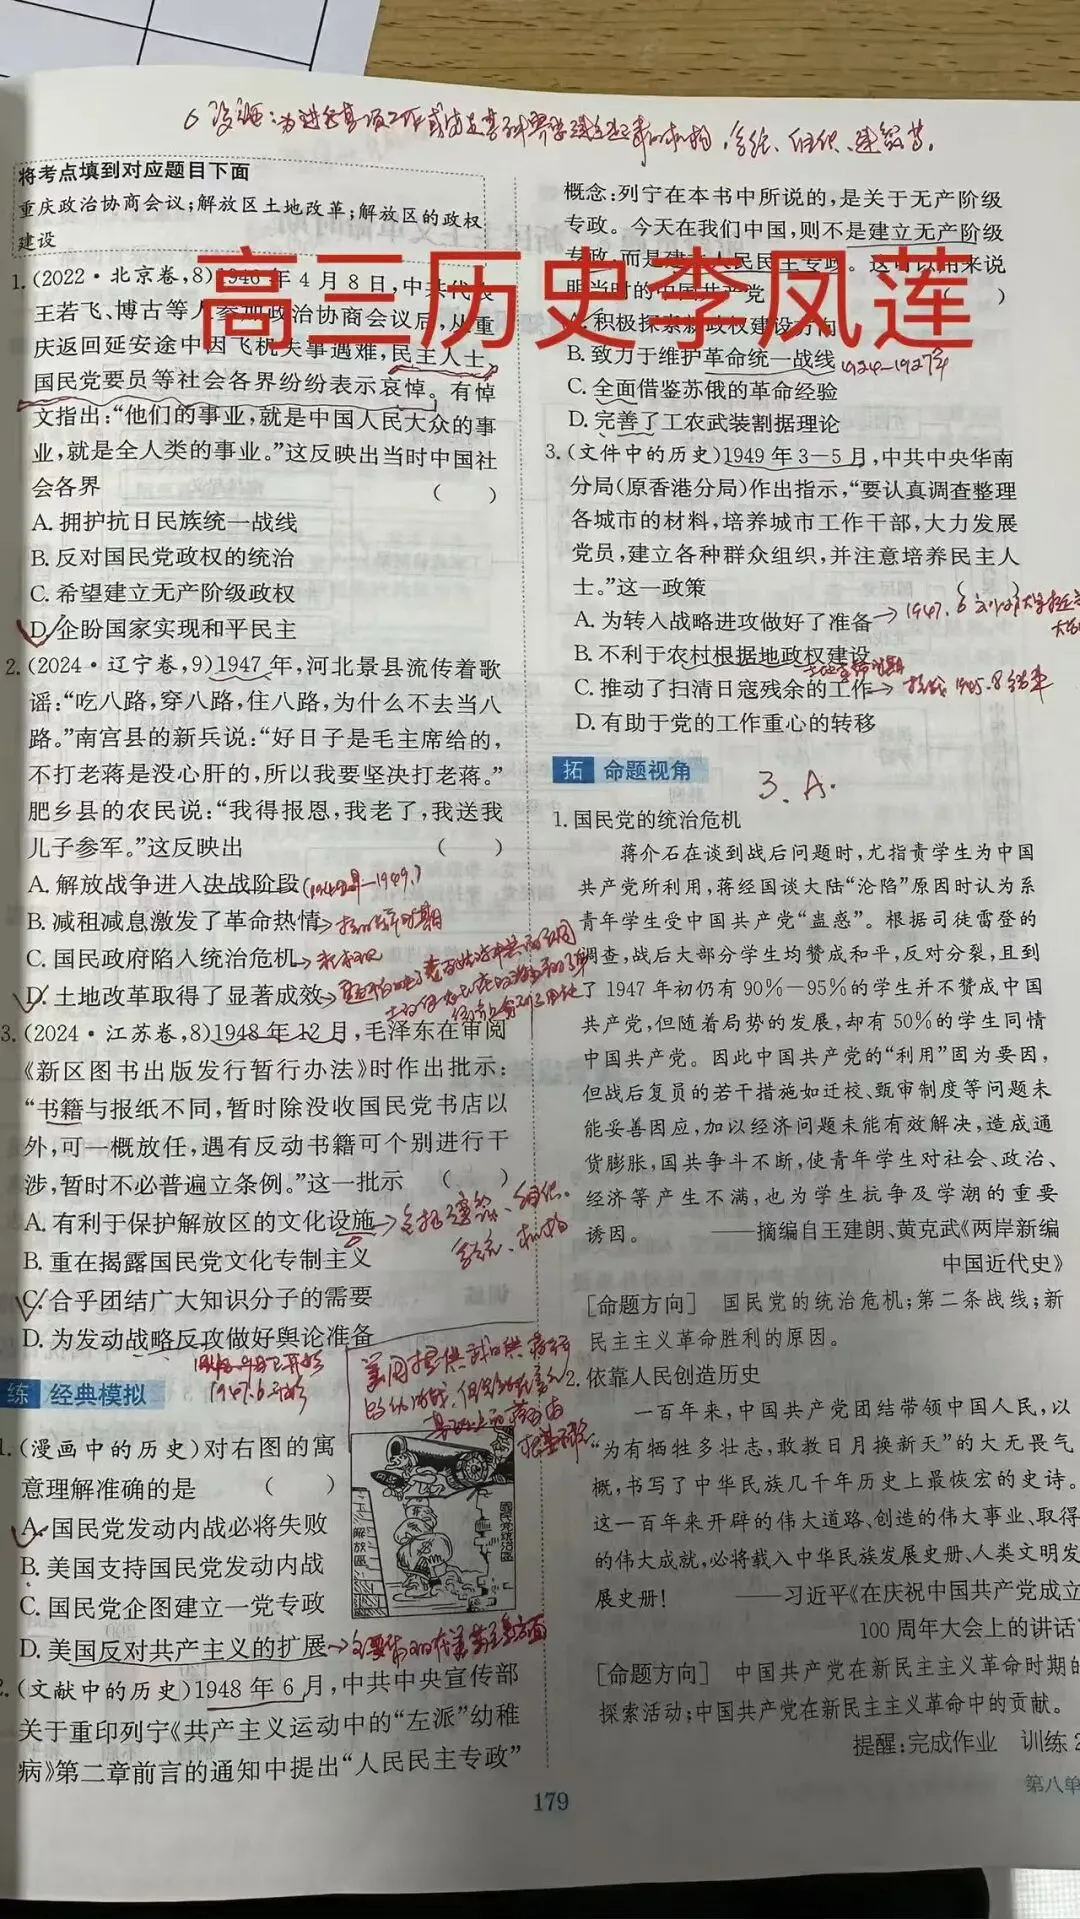 将考点填到对应题目下面
重庆政治协商会议;解放区土地改革;解放区的政权
建设
1.(2022·北京卷,8)1946年4月8日,中共代表
王若飞、博古等人参加政治协商会议后,从重
庆返回延安途中因飞机失事遇难,民主人士、
国民党要员等社会各界纷纷表示哀悼。有悼
文指出:“他们的事业,就是中国人民大众的事
业,就是全人类的事业。”这反映出当时中国社
会各界 ( )
A.拥护抗日民族统一战线
B.反对国民党政权的统治
C.希望建立无产阶级政权
D.企盼国家实现和平民主
2.(2024·辽宁卷,9)1947年,河北景县流传着歌
谣:“吃八路,穿八路,住八路,为什么不去当八
路。”南宫县的新兵说:“好日子是毛主席给的,
不打老蒋是没心肝的,所以我要坚决打老蒋。”
肥乡县的农民说:“我得报恩,我老了,我送我
儿子参军。”这反映出 ( )
A.解放战争进入决战阶段
B.减租减息激发了革命热情
C.国民政府陷入统治危机
D.土地改革取得了显著成效
3.(2024·江苏卷,8)1948年12月,毛泽东在审阅
《新区图书出版发行暂行办法》时作出批示:
“书籍与报纸不同,暂时除没收国民党书店以
外,可一概放任,遇有反动书籍可个别进行干
涉,暂时不必普遍立条例。”这一批示 ( )
A.有利于保护解放区的文化设施
B.重在揭露国民党文化专制主义
C.合乎团结广大知识分子的需要
D.为发动战略反攻做好舆论准备
1947.6开始
练 经典模拟
1.(漫画中的历史)对右图的寓
意理解准确的是 ( )
A.国民党发动内战必将失败
B.美国支持国民党发动内战
C.国民党企图建立一党专政
D.美国反对共产主义的扩展
解放区
国民党统治区
2.(文献中的历史)1948年6月,中共中央宣传部
关于重印列宁《共产主义运动中的“左派”幼稚
病》第二章前言的通知中提出“人民民主专政”
概念:列宁在本书中所说的,是关于无产阶级
专政。今天在我们中国,则不是建立无产阶级
专政,而是建立人民民主专政。这可以用来说
明当时的中国共产党 ( )
高三历史李凤莲
A.积极探索新政权建设方向
B.致力于维护革命统一战线 1924—1927年
C.全面借鉴苏俄的革命经验
D.完善了工农武装割据理论
3.(文件中的历史)1949年3—5月,中共中央华南
分局(原香港分局)作出指示,“要认真调查整理
各城市的材料,培养城市工作干部,大力发展
党员,建立各种群众组织,并注意培养民主人
士。”这一政策 ( )
A.为转入战略进攻做好了准备
B.不利于农村根据地政权建设
C.推动了扫清日寇残余的工作
D.有助于党的工作重心的转移
拓 命题视角
3.A.
1.国民党的统治危机
蒋介石在谈到战后问题时,尤指责学生为中国
共产党所利用,蒋经国谈大陆“沦陷”原因时认为系
青年学生受中国共产党“蛊惑”。根据司徒雷登的
调查,战后大部分学生均赞成和平,反对分裂,且到
了1947年初仍有90%—95%的学生并不赞成中国
共产党,但随着局势的发展,却有50%的学生同情
中国共产党。因此中国共产党的“利用”固为要因,
但战后复员的若干措施如迁校、甄审制度等问题未
能妥善因应,加以经济问题未能有效解决,造成通
货膨胀,国共争斗不断,使青年学生对社会、政治、
经济等产生不满,也为学生抗争及学潮的重要
诱因。 ——摘编自王建朗、黄克武《两岸新编
中国近代史》
[命题方向] 国民党的统治危机;第二条战线;新
民主主义革命胜利的原因。
2.依靠人民创造历史
一百年来,中国共产党团结带领中国人民,以
“为有牺牲多壮志,敢教日月换新天”的大无畏气
概,书写了中华民族几千年历史上最恢宏的史诗。
这一百年来开辟的伟大道路、创造的伟大事业、取得
的伟大成就,必将载入中华民族发展史册、人类文明发
展史册! ——习近平《在庆祝中国共产党成立
100周年大会上的讲话
[命题方向] 中国共产党在新民主主义革命时期的
探索活动;中国共产党在新民主主义革命中的贡献。
提醒:完成作业 训练2
第八单
179